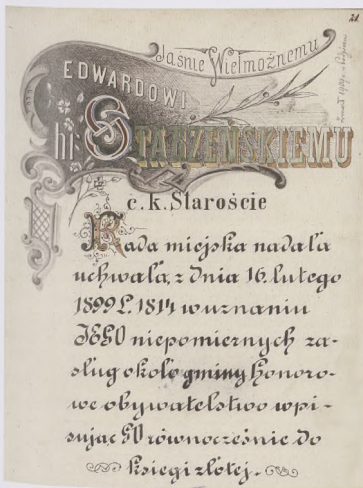 21.
Jaśnie Wielmożnemu
EDWARDOWI
hr. STARZEŃSKIEMU
c.k. Staroście
Rada miejska nadała
uchwałą z dnia 16. lutego
1899 L. 1814 w uznaniu
JEGO niepomiernych za-
sług około gminy honoro-
we obywatelstwo wpi-
sując GO równocześnie do
księgi złotej.